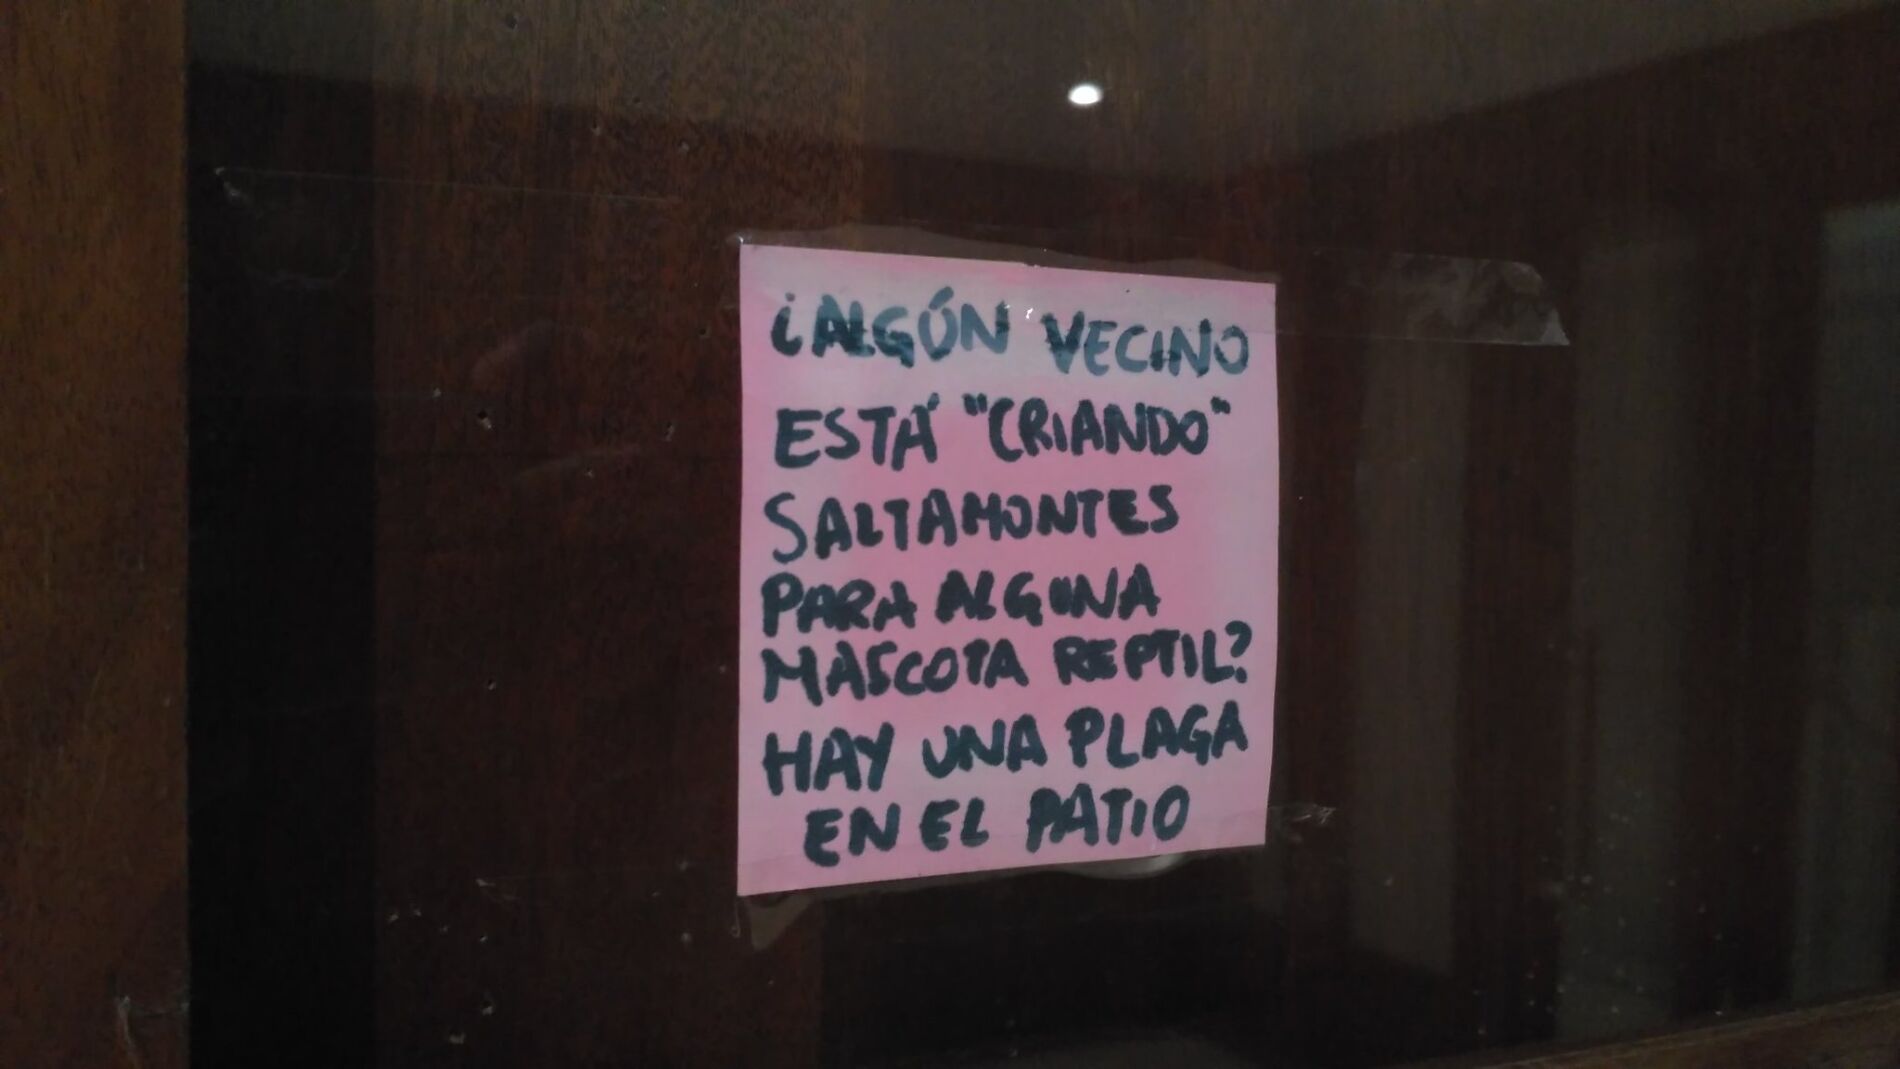 ¿ALGÚN VECINO
ESTÁ "CRIANDO"
SALTAMONTES
PARA ALGUNA
MASCOTA REPTIL?
HAY UNA PLAGA
EN EL PATIO